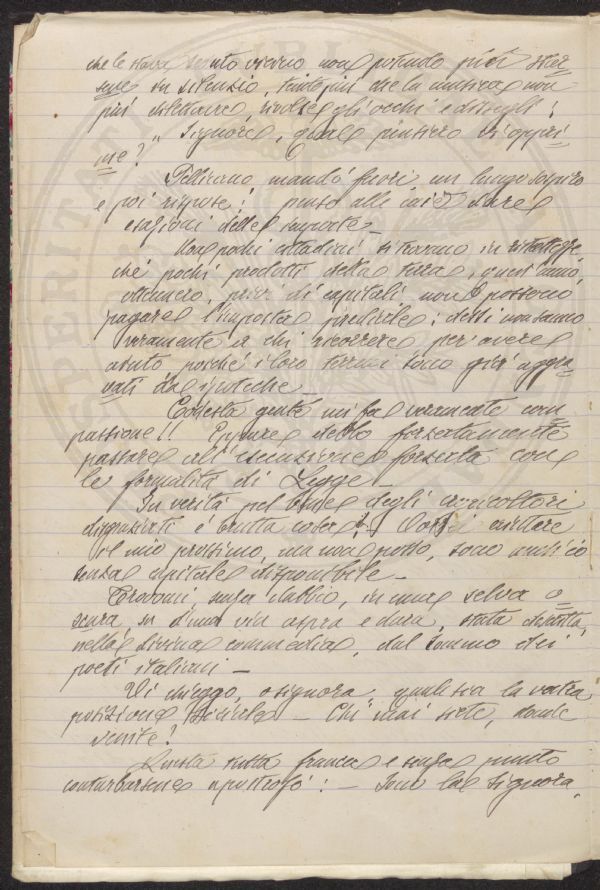 che le stava seduto vicino non potendo più star
sene in silenzio, tanto più che la musica non
più dilettava, rivolse gli occhi e dissegli:
"Signore, quale pensiero vi oppri
me?"
Pellicano mandò fuori un lungo sospiro
e poi rispose: penso alle mie dure
esazioni delle imposte —
Non pochi cittadini si trovano in ristrettezze,
chè pochi prodotti della terra, quest'anno,
ottennero, privi di capitali non possono
pagare l'imposta prediale; dessi non sanno
veramente a chi ricorrere per avere
aiuto, poichè i loro terreni sono già aggra
vati da ipoteche.
Codesta gente mi fa veramente com
passione!! Eppure debbo forzatamente
passare all'esecuzione forzata con
le formalità di Legge —
In verità pel bene degli agricoltori
disgraziati è brutta cosa! Vorrei aiutare
il mio prossimo, ma non posso, sono anch'io
senza capitale disponibile —
Trovomi senza dubbio, in una selva o
scura, su d'una via aspra e dura, stata descritta,
nella divina commedia, dal sommo dei
poeti italiani —
Vi chieggo, o signora, qual sia la vostra
posizione sociale — Chi mai siete, donde
venite?
Questa tutta franca e senza punto
conturbarsene apostrofò: — Sono la Signora,